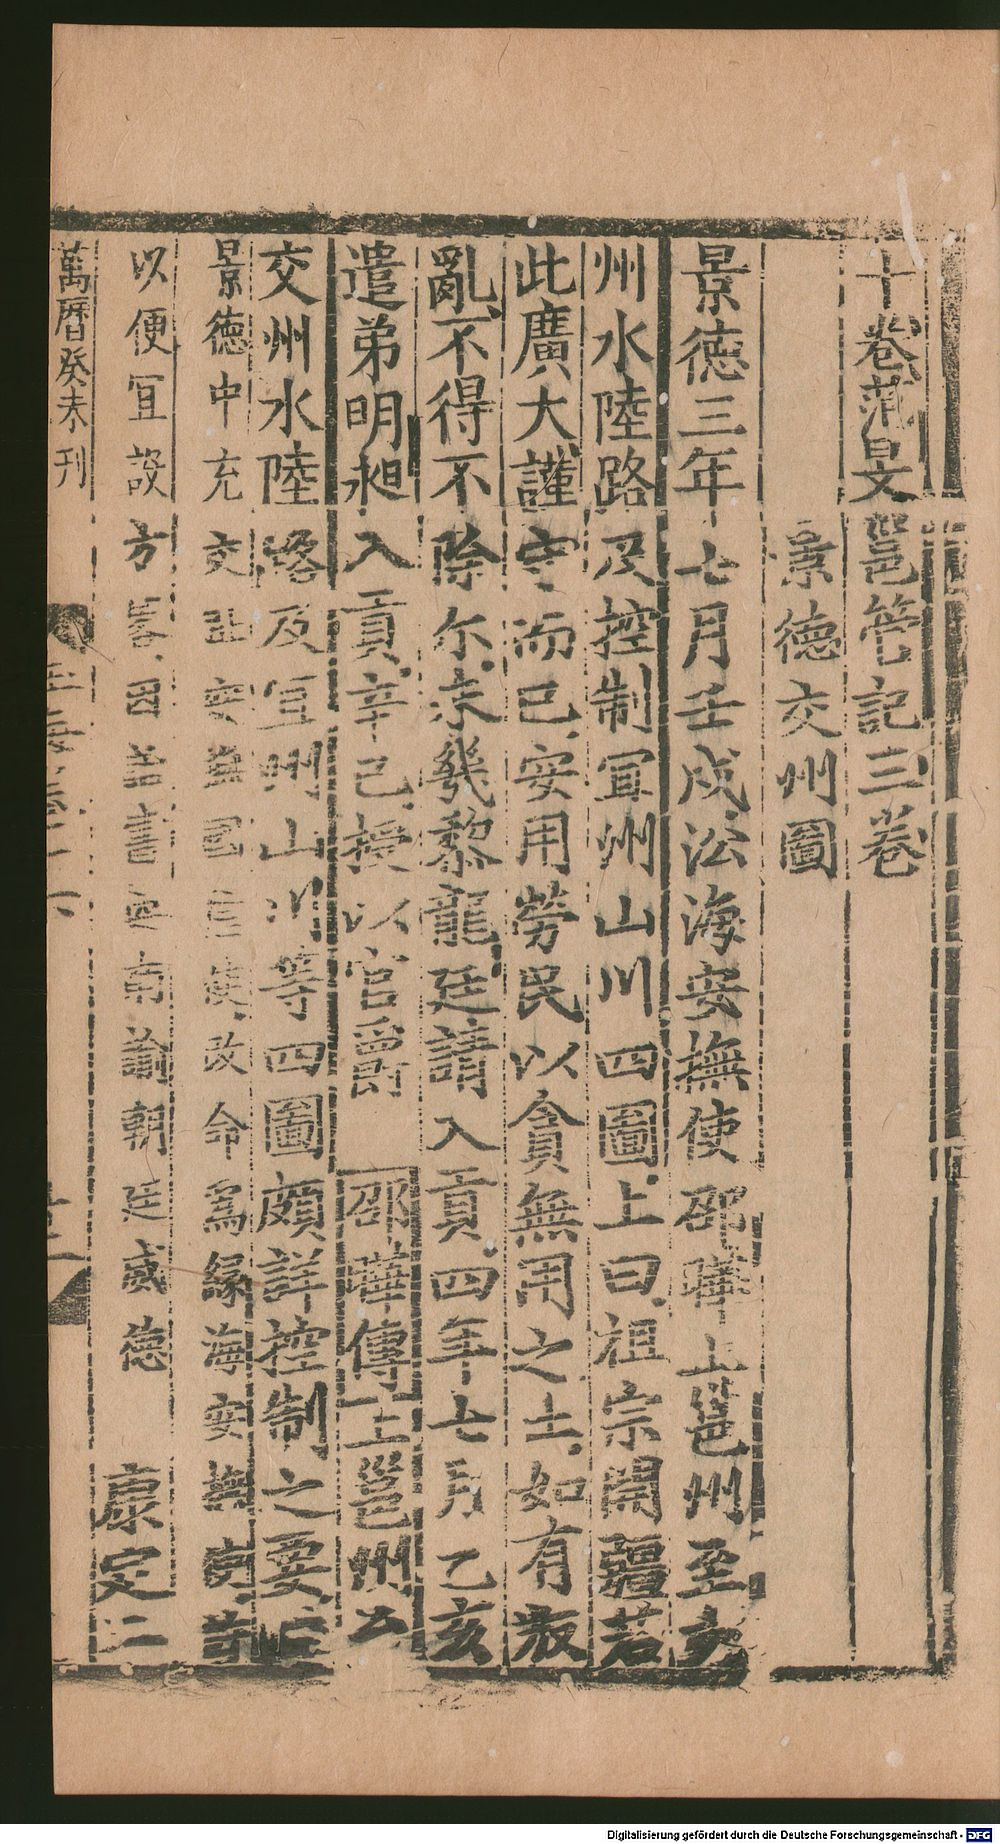 十卷范旻邕管記三卷
景德交州圖
景德三年七月壬戌沿海安撫使邵曄上邕州至交
州水陸路及控制宜州山川四圖上曰祖宗開疆若
此廣大謹守而已安用勞民以貪無用之土如有叛
亂不得不除尔未幾黎龍廷請入貢四年七月乙亥
遣弟明昶入貢辛巳授以官爵 邵曄傳上邕州公
交州水陸路及宜州山川等四圖頗詳控制之要
景德中充交趾安撫國信使改命爲緣海安撫使
以便宜設方畧因貽書安南諭朝廷威德 康定二
萬曆癸未刊
Digitalisierung gefördert durch die Deutsche Forschungsgemeinschaft - DFG